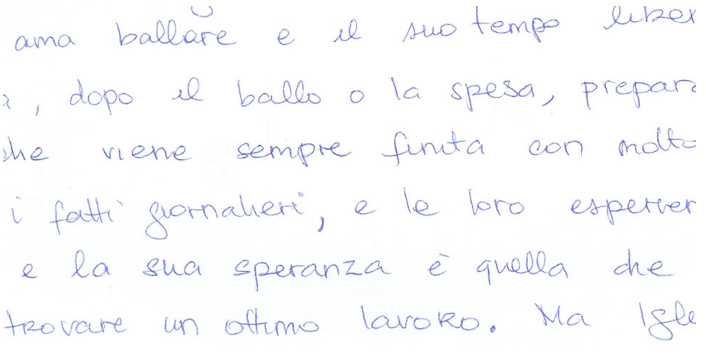 ama ballare e il suo tempo liber
, dopo il ballo o la spesa, prepara
che viene sempre finita con molto
i fatti giornalieri, e le loro esperien
e la sua speranza è quella che
trovare un ottimo lavoro. Ma Igle